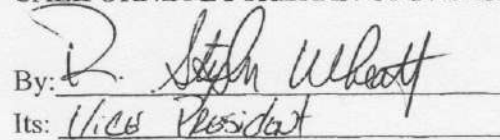 By: R. Stephen Wheatt
Its: Vice President